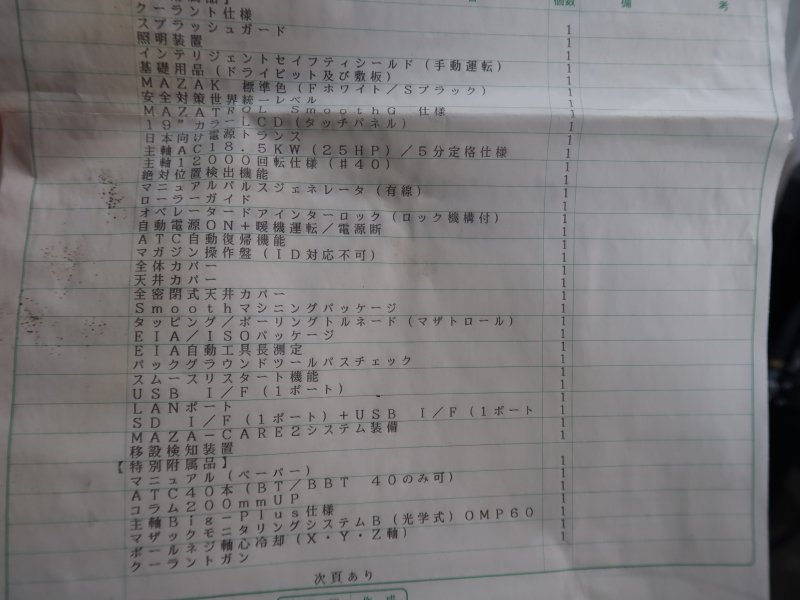 個数 備 考
クーラント仕様 1
スプラッシュガード 1
照明装置 1
インテリジェントセイフティシールド（手動運転） 1
基礎用品（ドライピット及び敷板） 1
ＭＡＺＡＫ 標準色（Ｆホワイト／Ｓブラック） 1
安全対策世界統一レベル 1
ＭＡＺＡＴＲＯＬ ＳｍｏｏｔｈＧ 仕様 1
１９”カラーＬＣＤ（タッチパネル） 1
日本向け電源トランス 1
主軸ＡＣ１８．５ＫＷ（２５ＨＰ）／５分定格仕様 1
主軸１２０００回転仕様（＃４０） 1
絶対位置検出機能 1
マニュアルパルスジェネレータ（有線） 1
ローラーガイド 1
オペレータードアインターロック（ロック機構付） 1
自動電源ＯＮ＋暖機運転／電源断 1
ＡＴＣ自動復帰機能 1
マガジン操作盤（ＩＤ対応不可） 1
全体カバー 1
天井カバー 1
全密閉式天井カバー 1
Ｓｍｏｏｔｈマシニングパッケージ 1
タッピング／ボーリングトルネード（マザトロール） 1
ＥＩＡ／ＩＳＯパッケージ 1
ＥＩＡ自動工具長測定 1
バックグラウンドツールパスチェック 1
スムースリスタート機能 1
ＵＳＢ Ｉ／Ｆ（１ポート） 1
ＬＡＮポート 1
ＳＤ Ｉ／Ｆ（１ポート）＋ＵＳＢ Ｉ／Ｆ（１ポート 1
ＭＡＺＡ－ＣＡＲＥ２システム装備 1
移設検知装置
【特別附属品】
マニュアル（ペーパー） 1
ＡＴＣ４０本（ＢＴ／ＢＢＴ ４０のみ可） 1
コラム２００ｍｍＵＰ 1
主軸Ｂｉｇ－Ｐｌｕｓ仕様 1
マザックモニタリングシステムＢ（光学式）ＯＭＰ６０ 1
ボールネジ軸心冷却（Ｘ・Ｙ・Ｚ軸） 1
クーラントガン 1
次頁あり